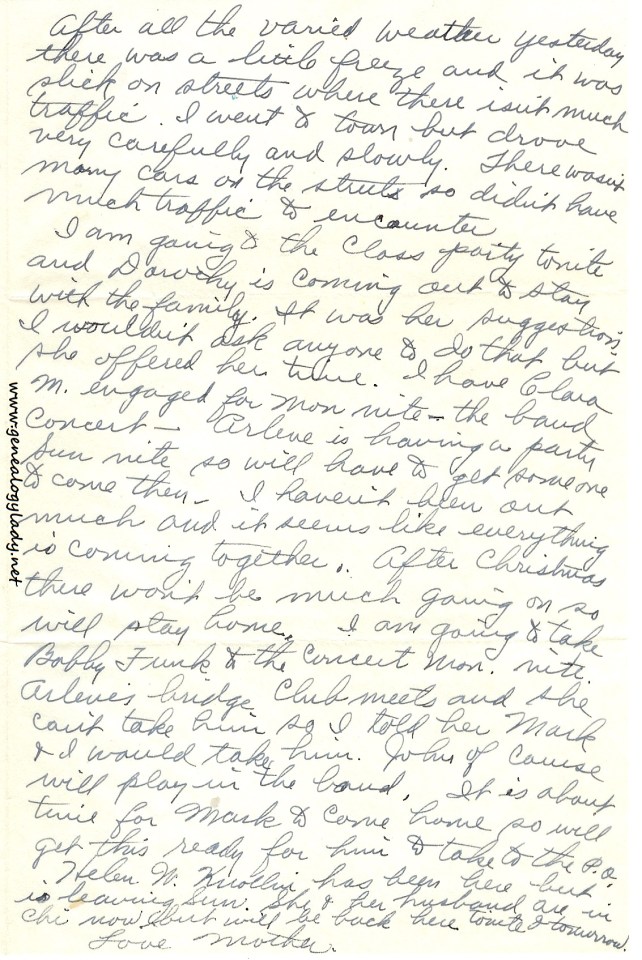 After all the varied weather yesterday
there was a little freeze and it was
slick on streets where there isn't much
traffic. I went to town but drove
very carefully and slowly. There wasn't
many cars on the streets so didn't have
much traffic to encounter
I am going to the Class party tonite
and Dorothy is coming out to stay
with the family. It was her suggestion.
I wouldn't ask anyone to do that but
she offered her time. I have Clara
M. engaged for Mon nite - the band
Concert - Arlene is having a party
Sun nite so will have to get someone
to come then - I haven't been out
much and it seems like everything
is coming together. After Christmas
there won't be much going on so
will stay home. I am going to take
Bobby Funk to the Concert Mon. nite
Arlene's bridge Club meets and she
can't take him so I told her Mark
& I would take him. John of course
will play in the band. It is about
time for Mark to come home so will
get this ready for him to take to the P.O.
Helen W. has been here but
is leaving Sun. She & her husband are in
Chi now but will be back here tonite & tomorrow.
Love Mother.
www.genealogylady.net